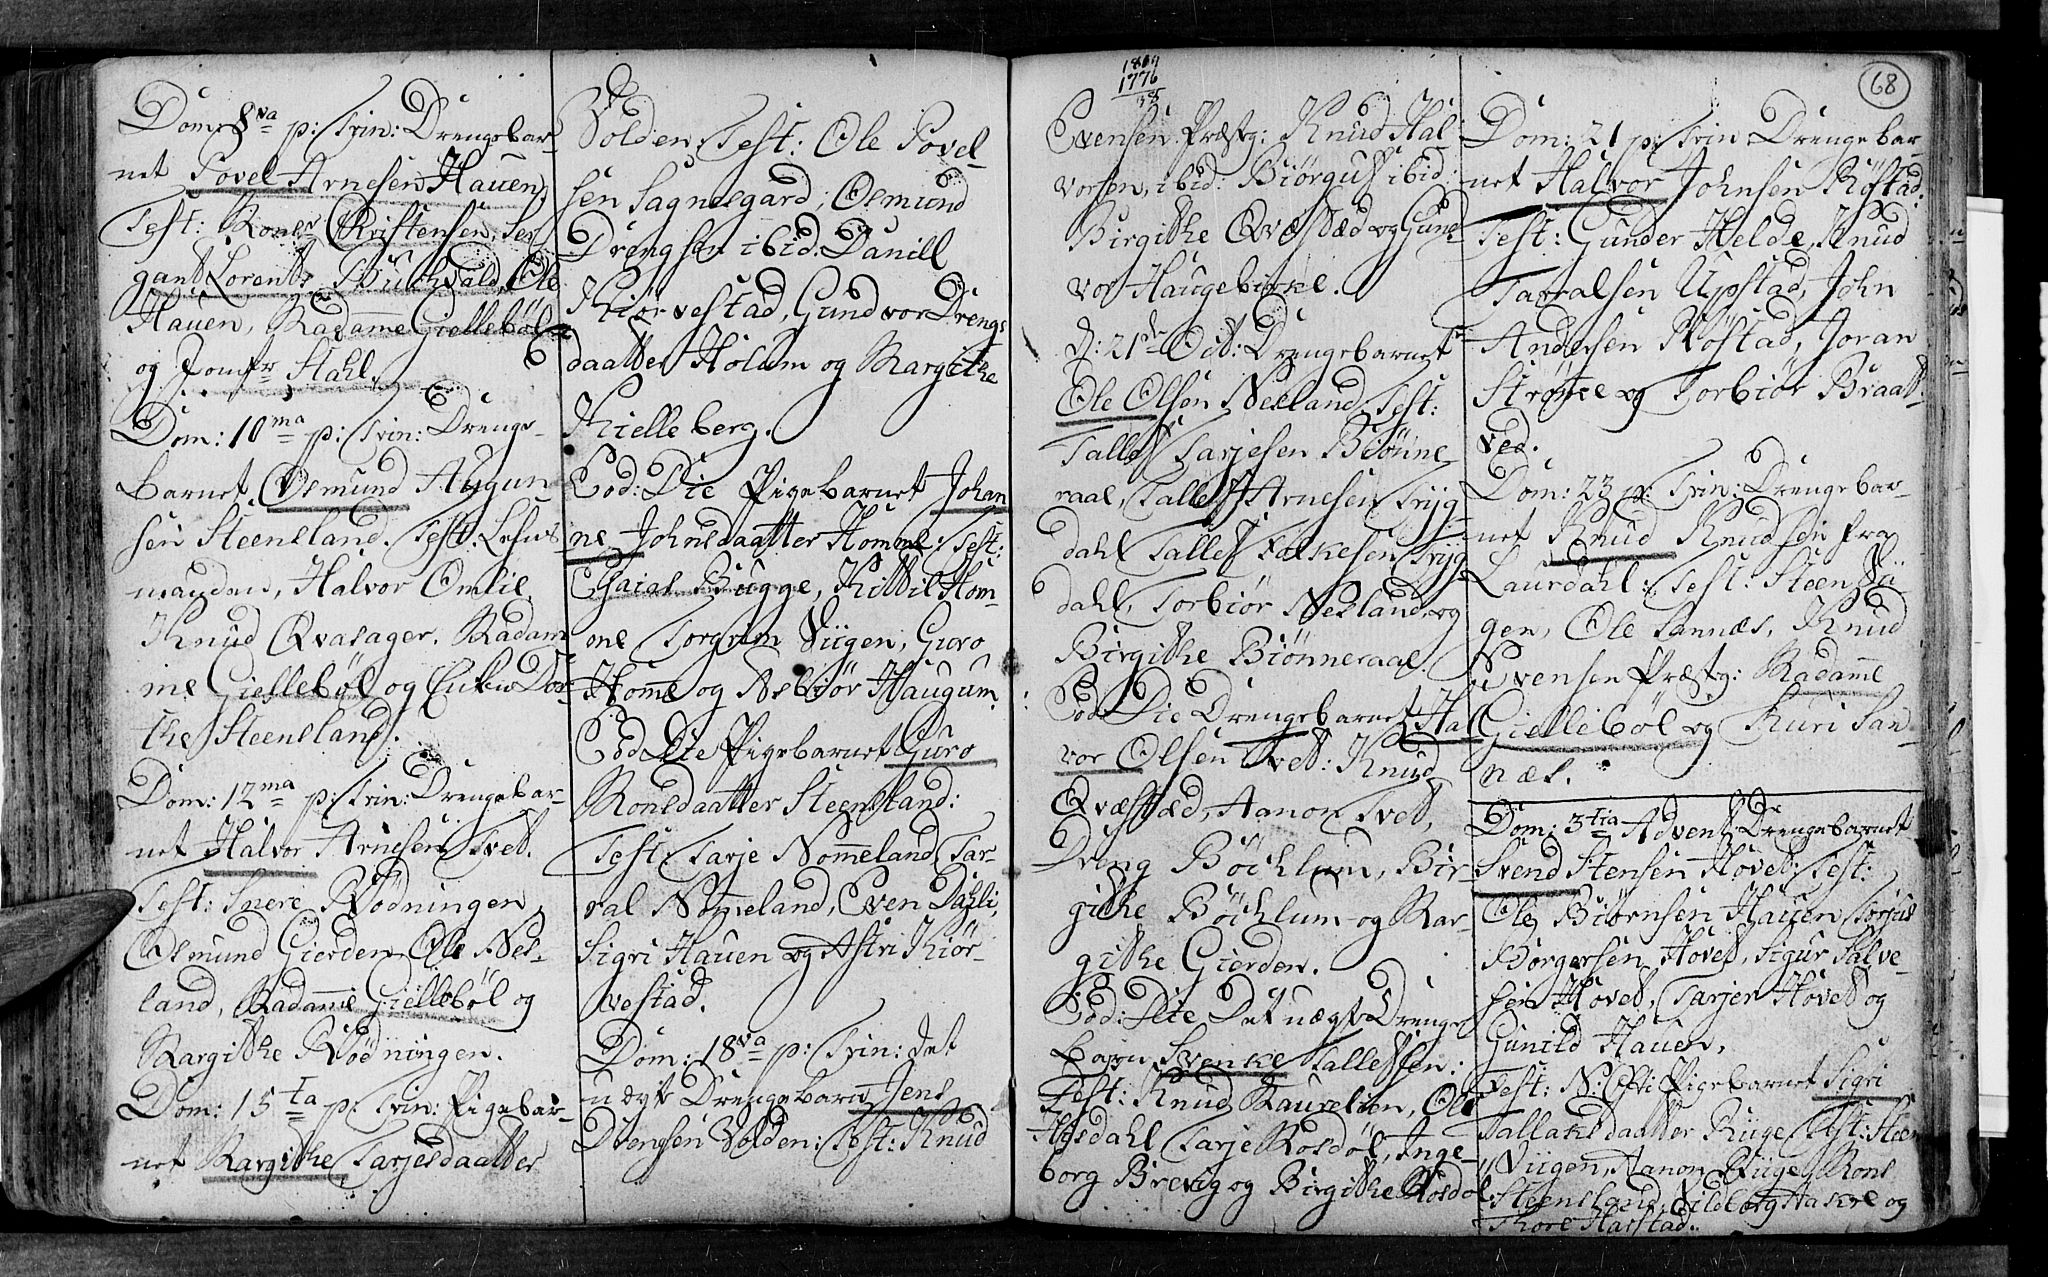 Dom: 8va p: Trin: Drengebar-
net Povel Arnesen Hauen,
Test: Mons Christensen, Ser
gant Lorents Buchvald, Ole
Hauen, Madame Giellebøl
og Jomfr Stahl.
Dom: 10ma p: Trin: Drenge-
barnet Osmund Augun
sen Steensland. Test: Lehns
manden, Halvor Omlie,
Knud Qvasager. Madam
me Giellebøl og Enken Dor-
the Steensland.
Dom: 12ma p: Trin: Drengebar-
net Halvor Arnesen Tvet.
Test: Snere Rødningen,
Osmund Gierden, Ole Nes-
land, Madame Giellebøl og
Margithe Rødningen.
Dom: 15ta p: Trin: Pigebar-
net Margithe Tarjesdaatter
Volden, Test: Ole Povel-
sen Sagnesgard, Osmund
Drengsen ibid. Daniel
Kiørvestad, Gundvor Drengs
daatter Holum og Margithe
Kielleberg.
Eod: Die Pigebarnet Johan
ne Johnsdaatter Homme: Test:
Esaias Bugge, Kittil Hom-
me Torgrim Viigen, Guro
Homme og Asbiør Haugum.
Eod Die Pigebarnet Guro
Monsdaatter Steensland:
Test: Tarje Nommeland, Tar-
ral Nommeland, Even Dahli,
Sigri Hauen og Astri Kiør-
vestad.
Dom: 18va p: Trin: Det
udgt Drengebarn Jens
Drengsen Volden: Test: Knud
1804
1776
Evensen Præstg: Knud Hal-
vorsen, ibid: Biørgu ibid:
Birgithe Qvæstæd og Gund-
vor Haugebirke.
d: 21de Oct: Drengebarnet
Ole Olsen Nesland, Test:
Talle Tarjesen Biønne
raal, Talle Arnesen Tryg-
dahl, Talle Folkesen Tryg
dahl, Torbiør Nesland og
Birgithe Biønneraal.
Eod: Die Drengebarnet Hal
vor Olsen Tvet: Knud
Qvæstæd, Aanon Tvet,
Dreng Bøchlum, Bir-
githe Bøchlum og Mar-
githe Gierden.
Eod: Die Det uægte Drenge
barn Svenke Tallefsen:
Test: Knud Maurelien, Ole
Aasdahl Tarje Rosdøl, Inge-
borg Brevig og Birgithe Rosdøl
68
Dom: 21 p: Trin Drengebar-
net Halvor Johnsen Røstad:
Test: Gunder Helde, Knud
Tarralsen Upstad, John
Andersen Røstad, Joran
Strømme og Torbiør Braat-
ved.
Dom: 23 p: Trin: Drengebar-
net Knud Knudsen fra
Laurdahl: Test: Steen Vii
gen, Ole Sannæs, Knud
Svensen Præstg: Madamme
Giellebøl og Kuri San-
næs.
Dom: 3tia Advent: Drengebarnet
Svend Stensen Hovet: Test:
Ole Biørnsen Hauen Torjus
Børgersen Hovet, Sigur Salve-
sen Hovet, Tarjer Hovet og
Gunild Hauen,
Fest: N: Chri Pigebarnet Sigri
Tallaksdaatter Riige, Test: Steen
Viigen, Aanon Riige, Mons
Steensland, Sildborg Haskel og
Thore Harstad.